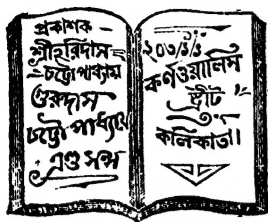 প্রকাশক —
শ্রীহরিদাস
চট্টোপাধ্যায়
গুরুদাস
চট্টোপাধ্যায়
এণ্ড সন্স
২০৩/১/১
কর্নওয়ালিস
ষ্ট্রীট
কলিকাতা।